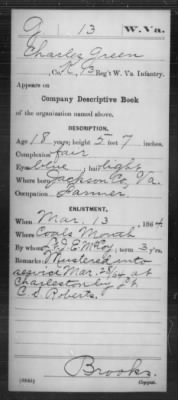 G 13 W. Va.
Charles Green
Co. K, 13 Reg't W. Va. Infantry.
Appears on
Company Descriptive Book
of the organization named above.
DESCRIPTION.
Age 18 years; height 5 feet 7 inches.
Complexion fair
Eyes blue; hair light
Where born Jackson Co, Va.
Occupation Farmer
ENLISTMENT.
When Mar. 13, 1864
Where Coals Mouth
By whom E. McCoy; term 3 y'rs.
Remarks: Mustered into
service Mar. 28/64 at
Charleston by Lt
C. S. Roberts.
Brooks
Copyist.